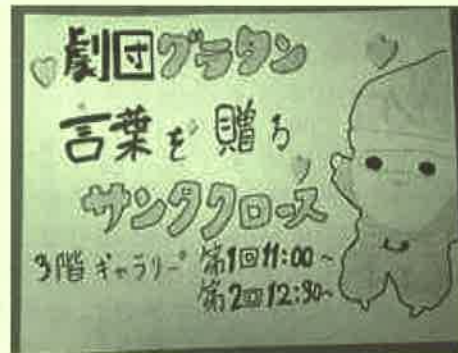 劇団グラタン
言葉を贈る
サンタクロース
3階ギャラリー 第1回11:00~
第2回12:30~